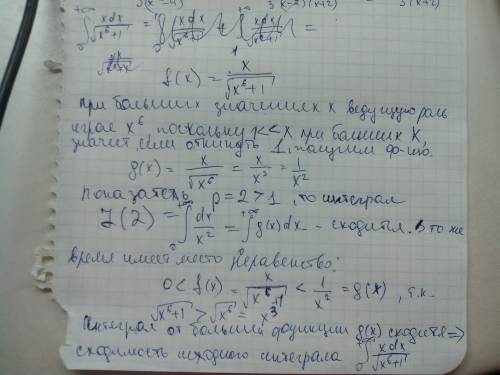 3(x-2)(x+2) 3(x+2)
∫₀^{+∞} xdx/√(x⁶+1) = ∫₀ xdx/√(x⁶+1) + ∫₁^{+∞} xdx/√(x⁶+1) =
f(x) = x/√(x⁶+1)
при больших значениях x ведущую роль
играе x⁶ поскольку 1<<x при больших x,
значит, если откинуть 1, получим ф-ию.
g(x) = x/√x⁶ = x/x³ = 1/x²
Показатель p=2>1, то интеграл
J(2) = ∫₀^{+∞} dx/x² = ∫₀^{+∞} g(x)dx - сходится. В то же
время имеет место неравенство:
0 < f(x) = x/√(x⁶+1) < 1/x² = g(x), т.к.
√(x⁶+1) > √x⁶ = x³
Интеграл от большей функции g(x) сходится ⇒
сходимость исходного интеграла ∫₀^{+∞} xdx/√(x⁶+1)